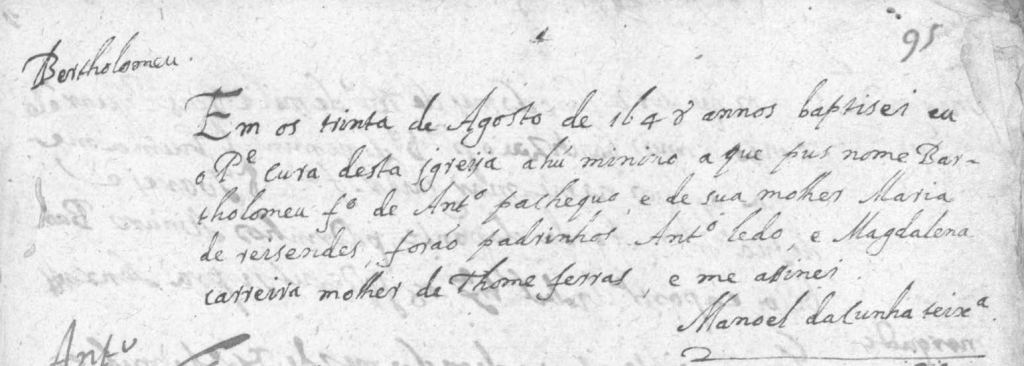 95
Bertholomeu.
Em os trinta de Agosto de 1648 annos baptisei eu
o Pᵉ cura desta jgreija a hũ minino a que pus nome Bar-
tholomeu fº de Antº pachequo, e de sua molher Maria
de reisendes, forão padrinhos Antº ledo, e Magdalena
carreira molher de Thome ferras, e me assinei.
Manoel da Cunha teixª.